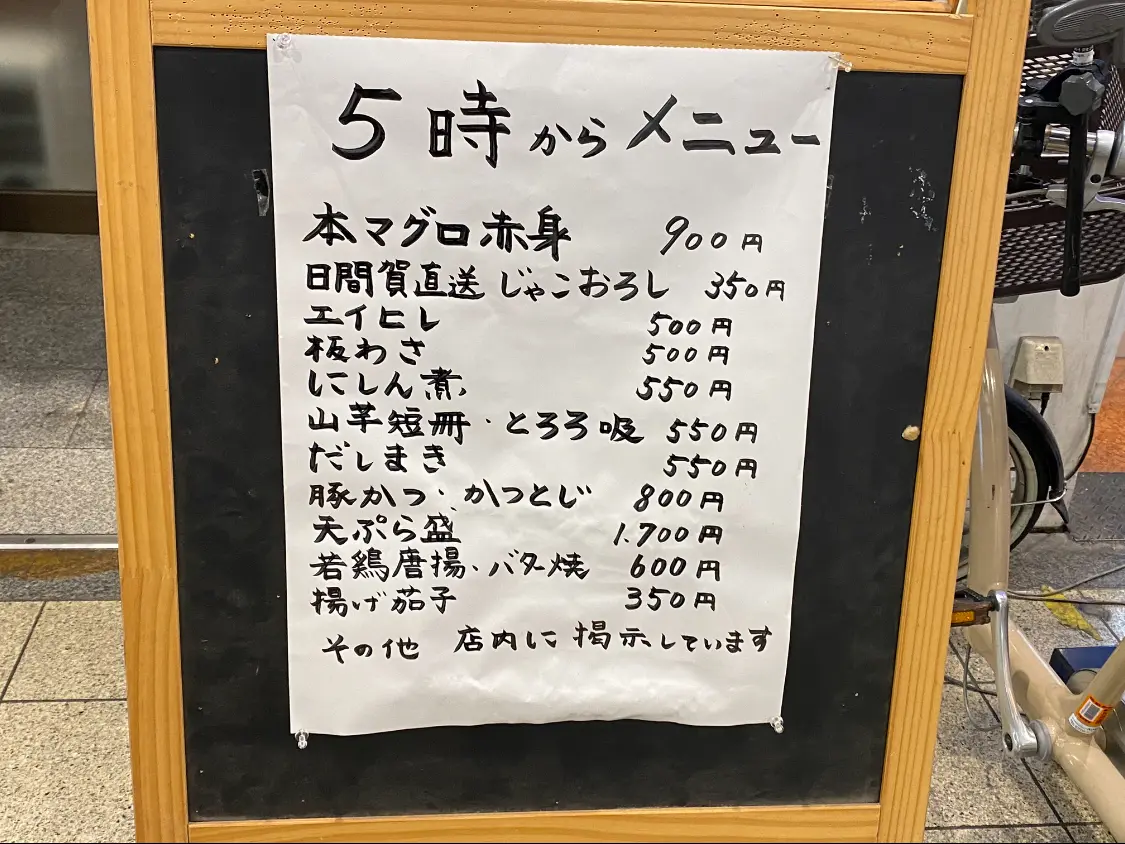 5時からメニュー
本マグロ赤身 900円
日間賀直送 じゃこおろし 350円
エイヒレ 500円
板わさ 500円
にしん煮 550円
山芋短冊・とろろ吸 550円
だしまき 550円
豚かつ・かつとじ 800円
天ぷら盛 1.700円
若鶏唐揚・バター焼 600円
揚げ茄子 350円
その他 店内に掲示しています